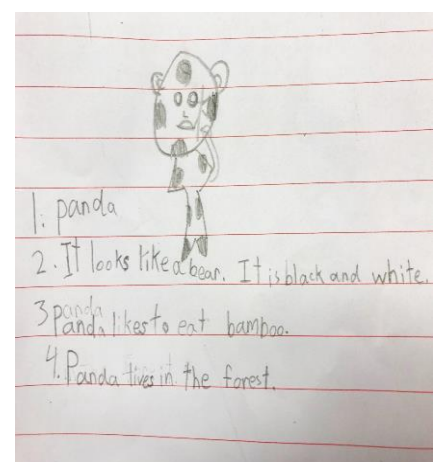 1. panda
2. It looks like a bear. It is black and white.
3 panda likes to eat bamboo.
4. Panda lives in the forest.